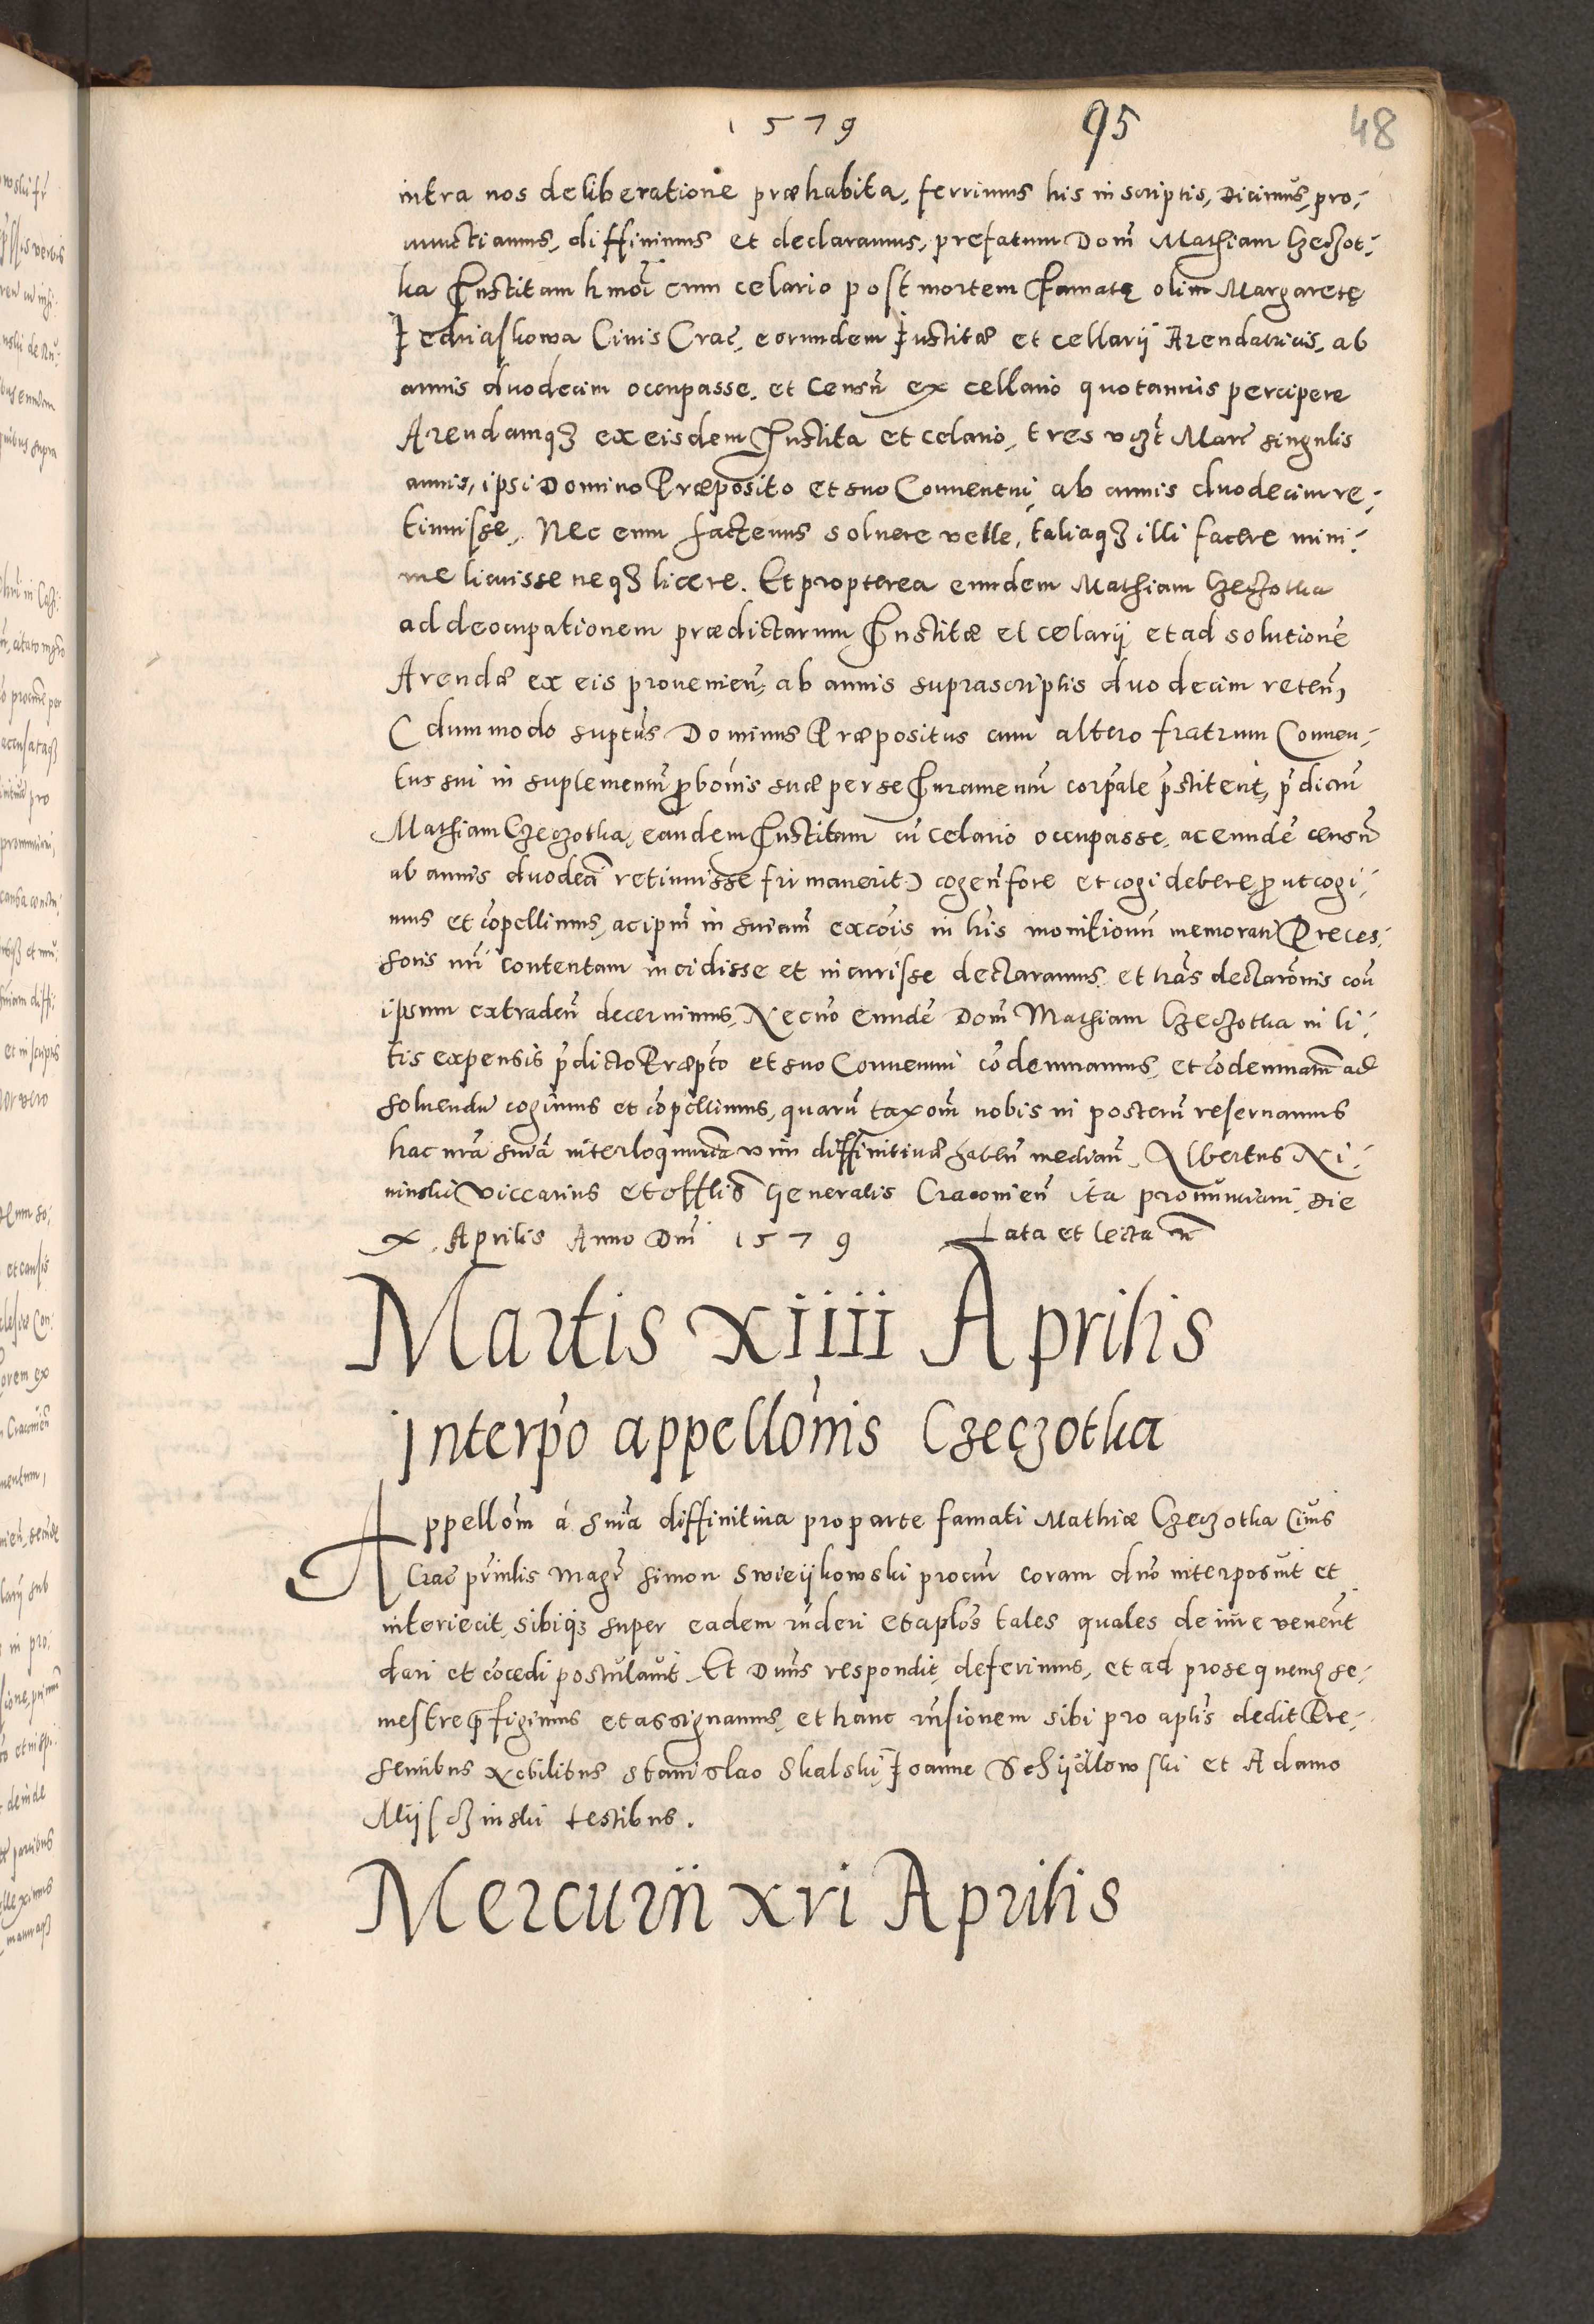 1579 95 48
intra nos deliberatione præhabita, ferrimus his in scriptis, Dicimus, pro-
nunctiamus, diffinimus et declaramus, prefatum Dom̃ Mathiam Czeczot-
ka Institam hmoi cum celario post mortem Famatę olim Margaretę
Jedriaskowa Civis Crac̃, eorundem Institæ et cellarii Arendatricis, ab
annis duodecim occupasse, et Censũ ex cellario quotannis percipere
Arendamqȝ ex eisdem Instita et celario, tres vȝt Marc̃ singulis
annis, ipsi Domino Præposito et suo Conventui, ab annis duodecim re-
tinuisse, Nec eum hactenus solvere velle, taliaqȝ illi facere mini-
me licuisse neqȝ licere. Et propterea eundem Mathiam Czeczotka
ad deocupationem prædictarum Institæ et celarii et ad solutionẽ
Arendæ ex eis provenieñ, ab annis suprascriptis duodecim reteñ,
( dummodo suptus Dominus Præpositus cum altero fratrum Conven-
tus sui in suplementũ probonis suæ per se Juramentũ corpale p̃stiterit, p̃dictũ
Mathiam Czeczotka, eandem Institam cũ celario occupasse, ac eundẽ censũ
ab annis duodeci retinuisse firmaverit) cogeñ fore et cogi debere prout cogi-
mus et cõpellimus, ac ipm̃ in sniam excõis in hr̃is monitionũ memorati Preces-
soris nr̃i contentam incidisse et incurisse declaramus, et hr̃as declarõnis coñ
ipsum extradeñ decernimus, Necnõ Eundẽ Dom̃ Mathiam Czeczotka in li-
tis expensis p̃dicto Præpto et suo Conventui cõdemnamus, et cõdemnatũ ad
solvendũ cogimus et cõpellimus, quarũ taxõm nobis in posterũ reservamus
hac nr̃a snia interloquutoria vim diffinitivæ habeñ mediañ. Albertus Ni-
ninski Viccarius et Offlis Generalis Cracovieñ ita pronunciavi, Die
X. Aprilis Anno Dni 1579 Lata et lecta
Martis xiiii Aprilis
Interpo appellonis Czeczotka
Appellõm à snia diffinitiva pro parte famati Mathiæ Czeczotka Civis
Crac̃ pr̃incilis Magr̃ Simon Swieijkowski procur̃ coram dño interposuit et
interiecit, sibiqȝ super eadem rñderi et aplõs tales quales de iure venerit
dari et cõcedi postulavit. Et Dñus respondit, deferimus, et ad prosequend̃ se-
mestre præfigimus et assignamus, et hanc rñsionem sibi pro aplis dedit Pre-
sentibus Nobilibus Stanislao Skalski, Joanne Schijdlowski et Adamo
Mijsczinski testibus.
Mercurii xvi Aprilis